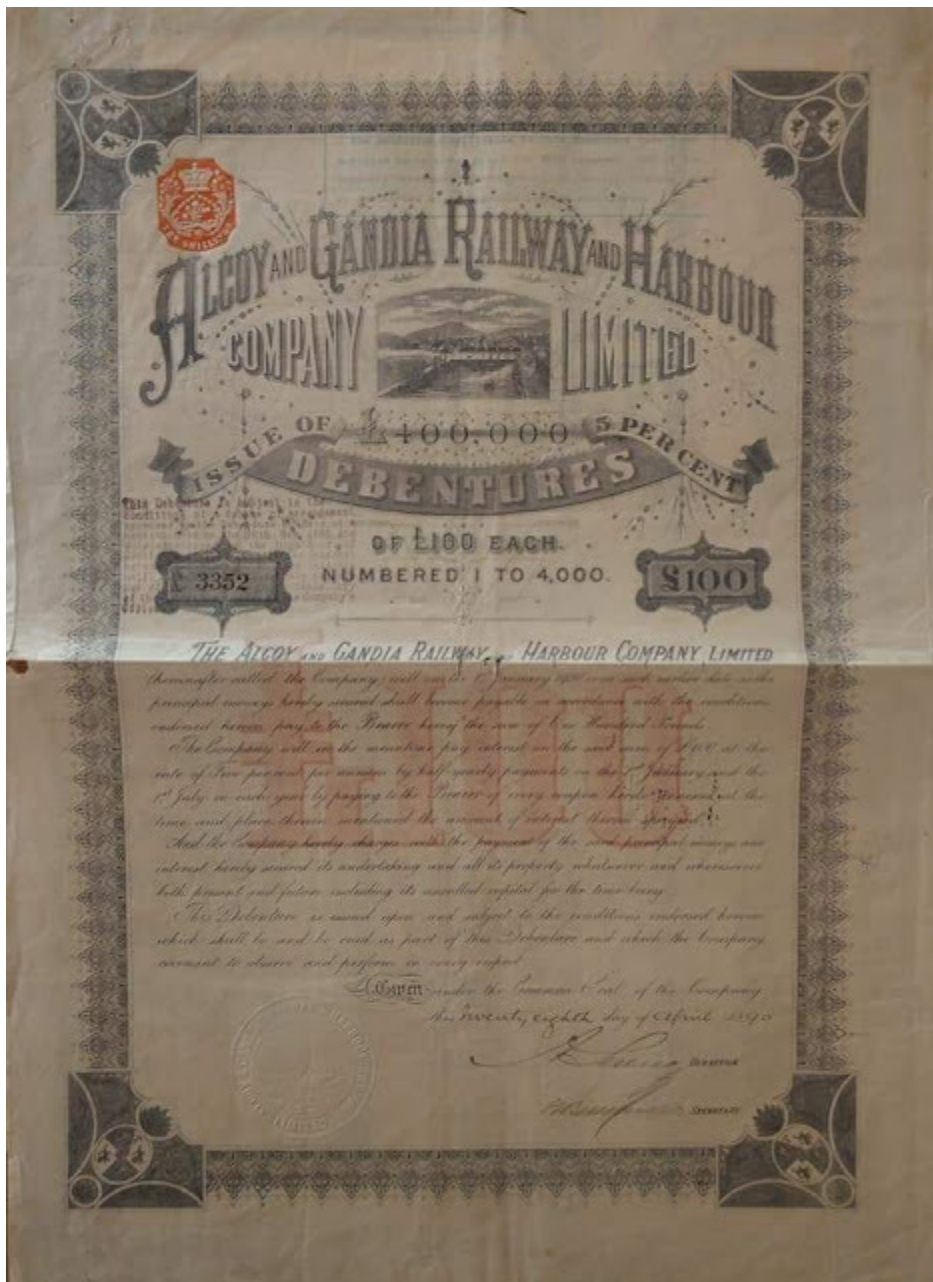 TEN SHILLINGS
ALCOY AND GANDIA RAILWAY AND HARBOUR
COMPANY LIMITED
ISSUE OF £400,000 5 PER CENT
DEBENTURES
This Debenture is subject to the
OF £100 EACH.
NUMBERED 1 TO 4,000.
3352 £100
THE ALCOY AND GANDIA RAILWAY AND HARBOUR COMPANY LIMITED
(hereinafter called the Company) will on the 1st January or on such earlier date as the
principal moneys hereby secured shall become payable in accordance with the conditions
endorsed hereon pay to the Bearer hereof the sum of One Hundred Pounds.
The Company will in the meantime pay interest on the said sum of £100 at the
rate of Five per cent per annum by half yearly payments on the 1st January and the
1st July in each year by paying to the Bearer of every coupon hereto annexed at the
time and place therein mentioned the amount of interest therein specified.
And the Company hereby charges with the payment of the said principal moneys and
interest hereby secured its undertaking and all its property whatsoever and wheresoever
both present and future including its uncalled capital for the time being.
This Debenture is issued upon and subject to the conditions endorsed hereon
which shall be and be read as part of this Debenture and which the Company
covenant to observe and perform in every respect.
£100
Given under the Common Seal of the Company
this twenty eighth day of April 1890
DIRECTOR
SECRETARY